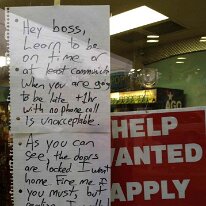 Hey boss,
Learn to be
on time or
at least communicate
when you are going
to be late. +1hr
with no phone call
is unacceptable.
As you can
see, the doors
are locked I went
home. Fire me if
you must, but
HELP
WANTED
APPLY